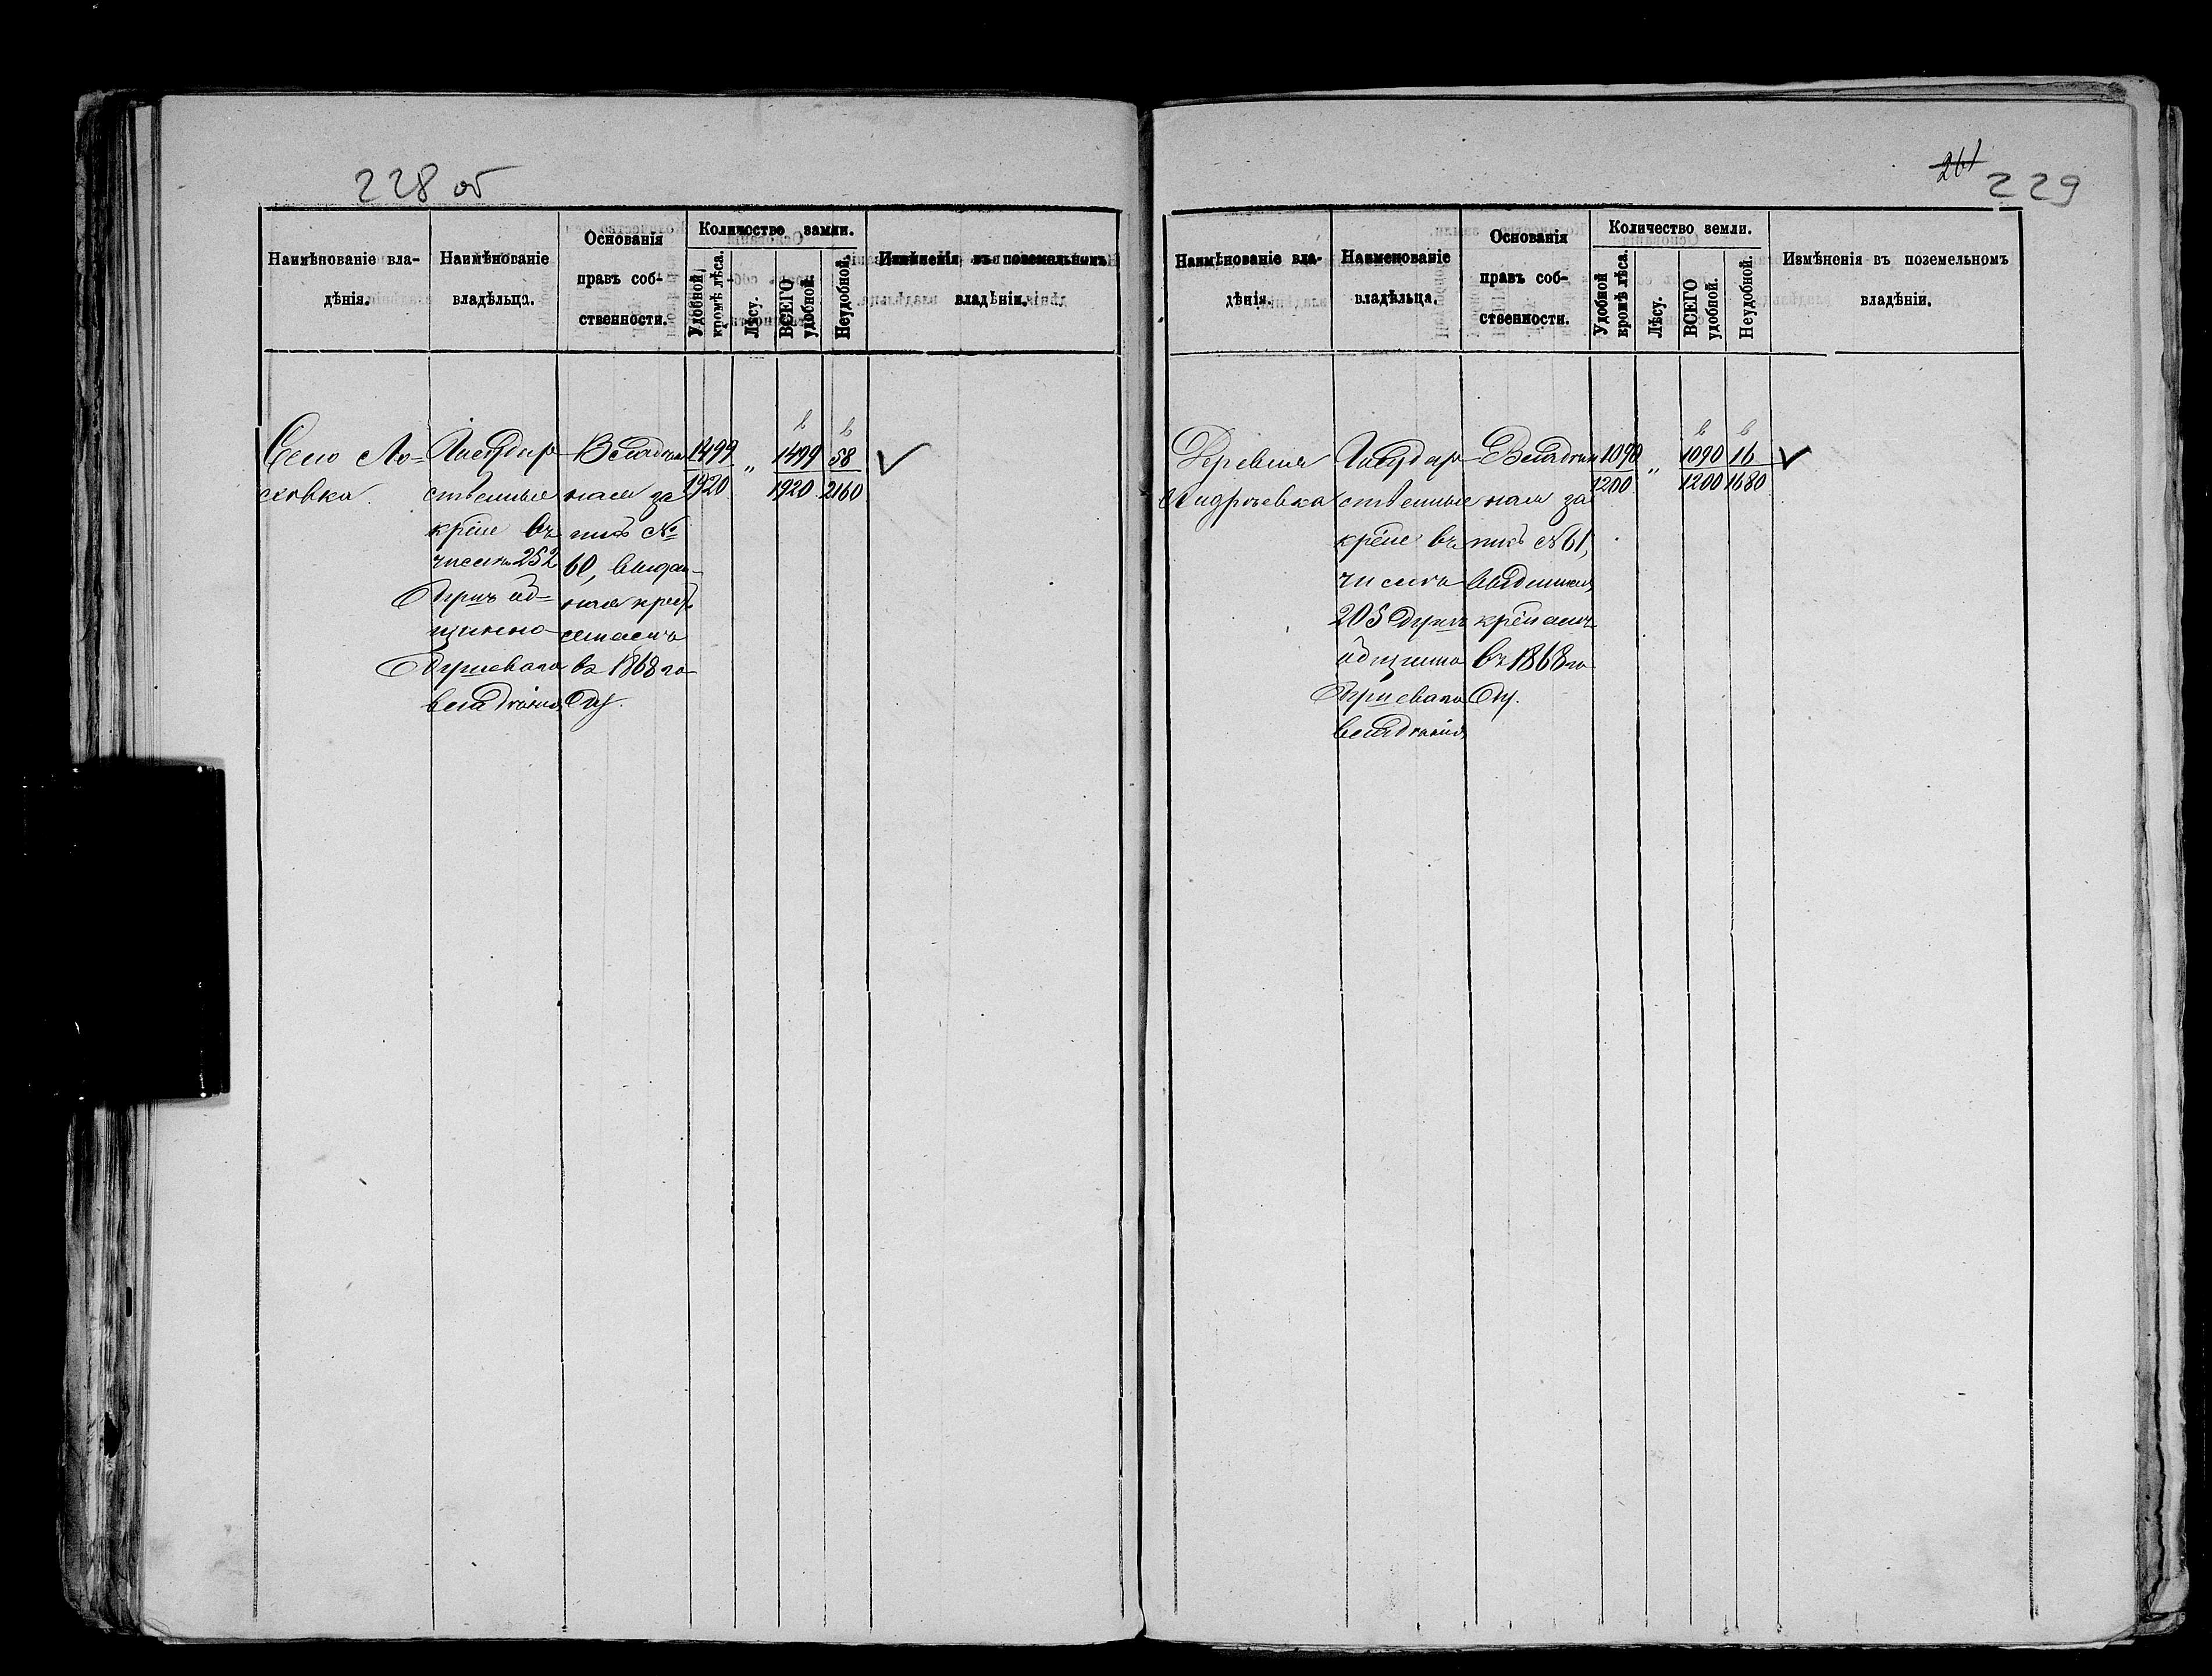 228 об
Наимѣнованіе вла-
дѣнія.
Наимѣнованіе
владѣльца.
Основанія
правъ соб-
ственности.
Количество земли.
Удобной,
кромѣ лѣса.
Лѣсу.
ВСЕГО
удобной.
Неудобной.
Измѣненія въ поземельномъ
владѣніи.
Село Ло-
сковка
Государ
ственные
крѣне въ
числѣ 252
душъ об=
щинно
душеваго
владѣнія
Владѣн
ная за
пись №
60, выдан-
ная кресть
янамъ
въ 1868 го
ду.
1499
1920
„
1499
1920
58
2160
261
229
Наимѣнованіе вла-
дѣнія.
Наименованіе
владѣльца.
Основанія
правъ соб-
ственности.
Количество земли.
Удобной
кромѣ лѣса.
Лѣсу.
ВСЕГО
удобной.
Неудобной.
Измѣненія въ поземельномъ
владѣніи.
Деревня
Андреевка
Государ
ственные
крѣне въ
числѣ
205 душъ
общинно
душеваго
владѣнія
Владѣн
ная за
пись № 61,
выданная
крѣнамъ
въ 1868 го
ду.
1090
1200
„
1090
1200
16
1680